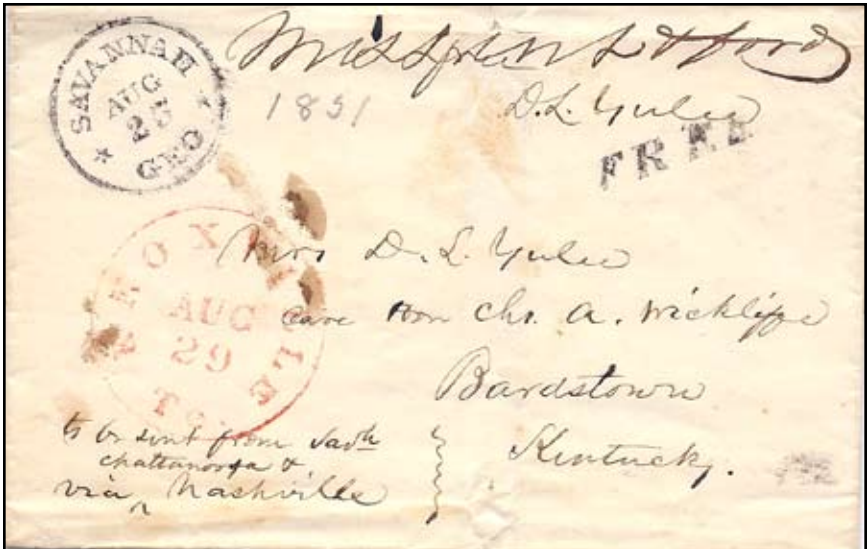 Missent & ford
SAVANNAH
AUG
25
GEO
1851
D. L. Yulee
FREE
KNOXVILLE
AUG
29
Te.
Mrs D. L. Yulee
care Hon Chs. A. Wickliffe
Bardstown
Kentucky.
to be sent from Savh
chattanooga &
via ^ Nashville